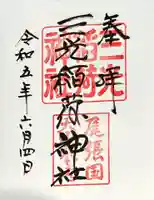 奉拝
尾張国
三光稲荷神社
三光
稲荷
神社
令和五年六月四日